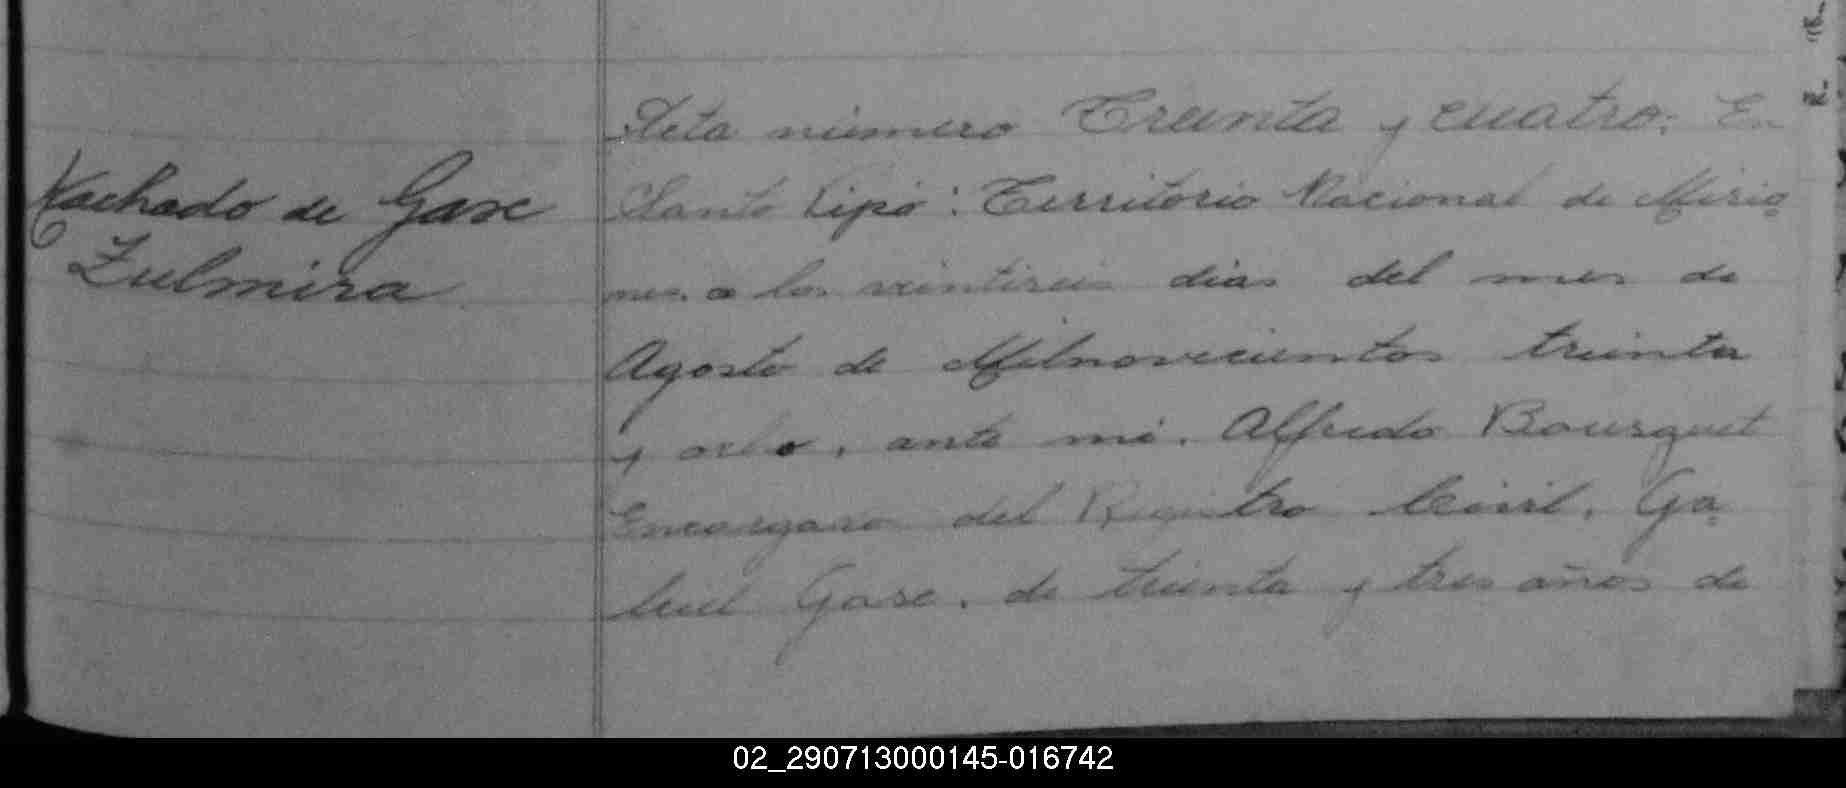 Machado de Gase
Zulmira
Acta número Treinta y cuatro: En
Santo Pipó: Territorio Nacional de Misio
nes. a los veintiseis dias del mes de
Agosto de Milnovecientos treinta
y ocho, ante mi. Alfredo Bousquet
Encargaro del Registro Civil, Ga
briel Gase, de treinta y tres años de
02_290713000145-016742